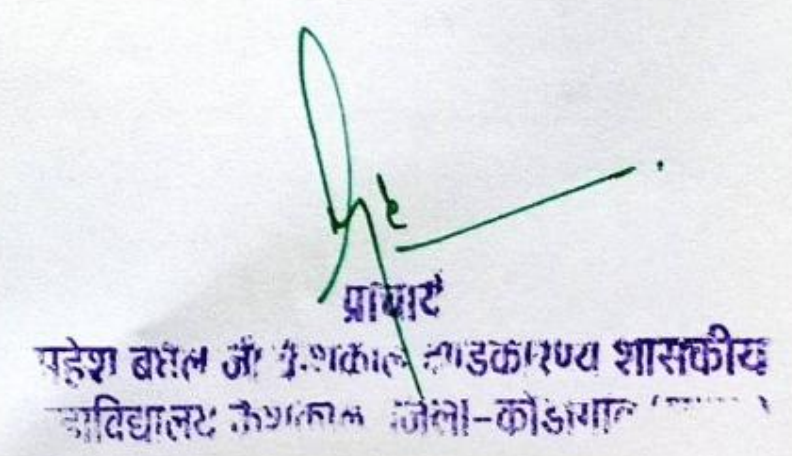 प्राचार्य
महेश बघेल जी केशकाल दण्डकारण्य शासकीय
महाविद्यालय केशकाल जिला-कोंडागांव